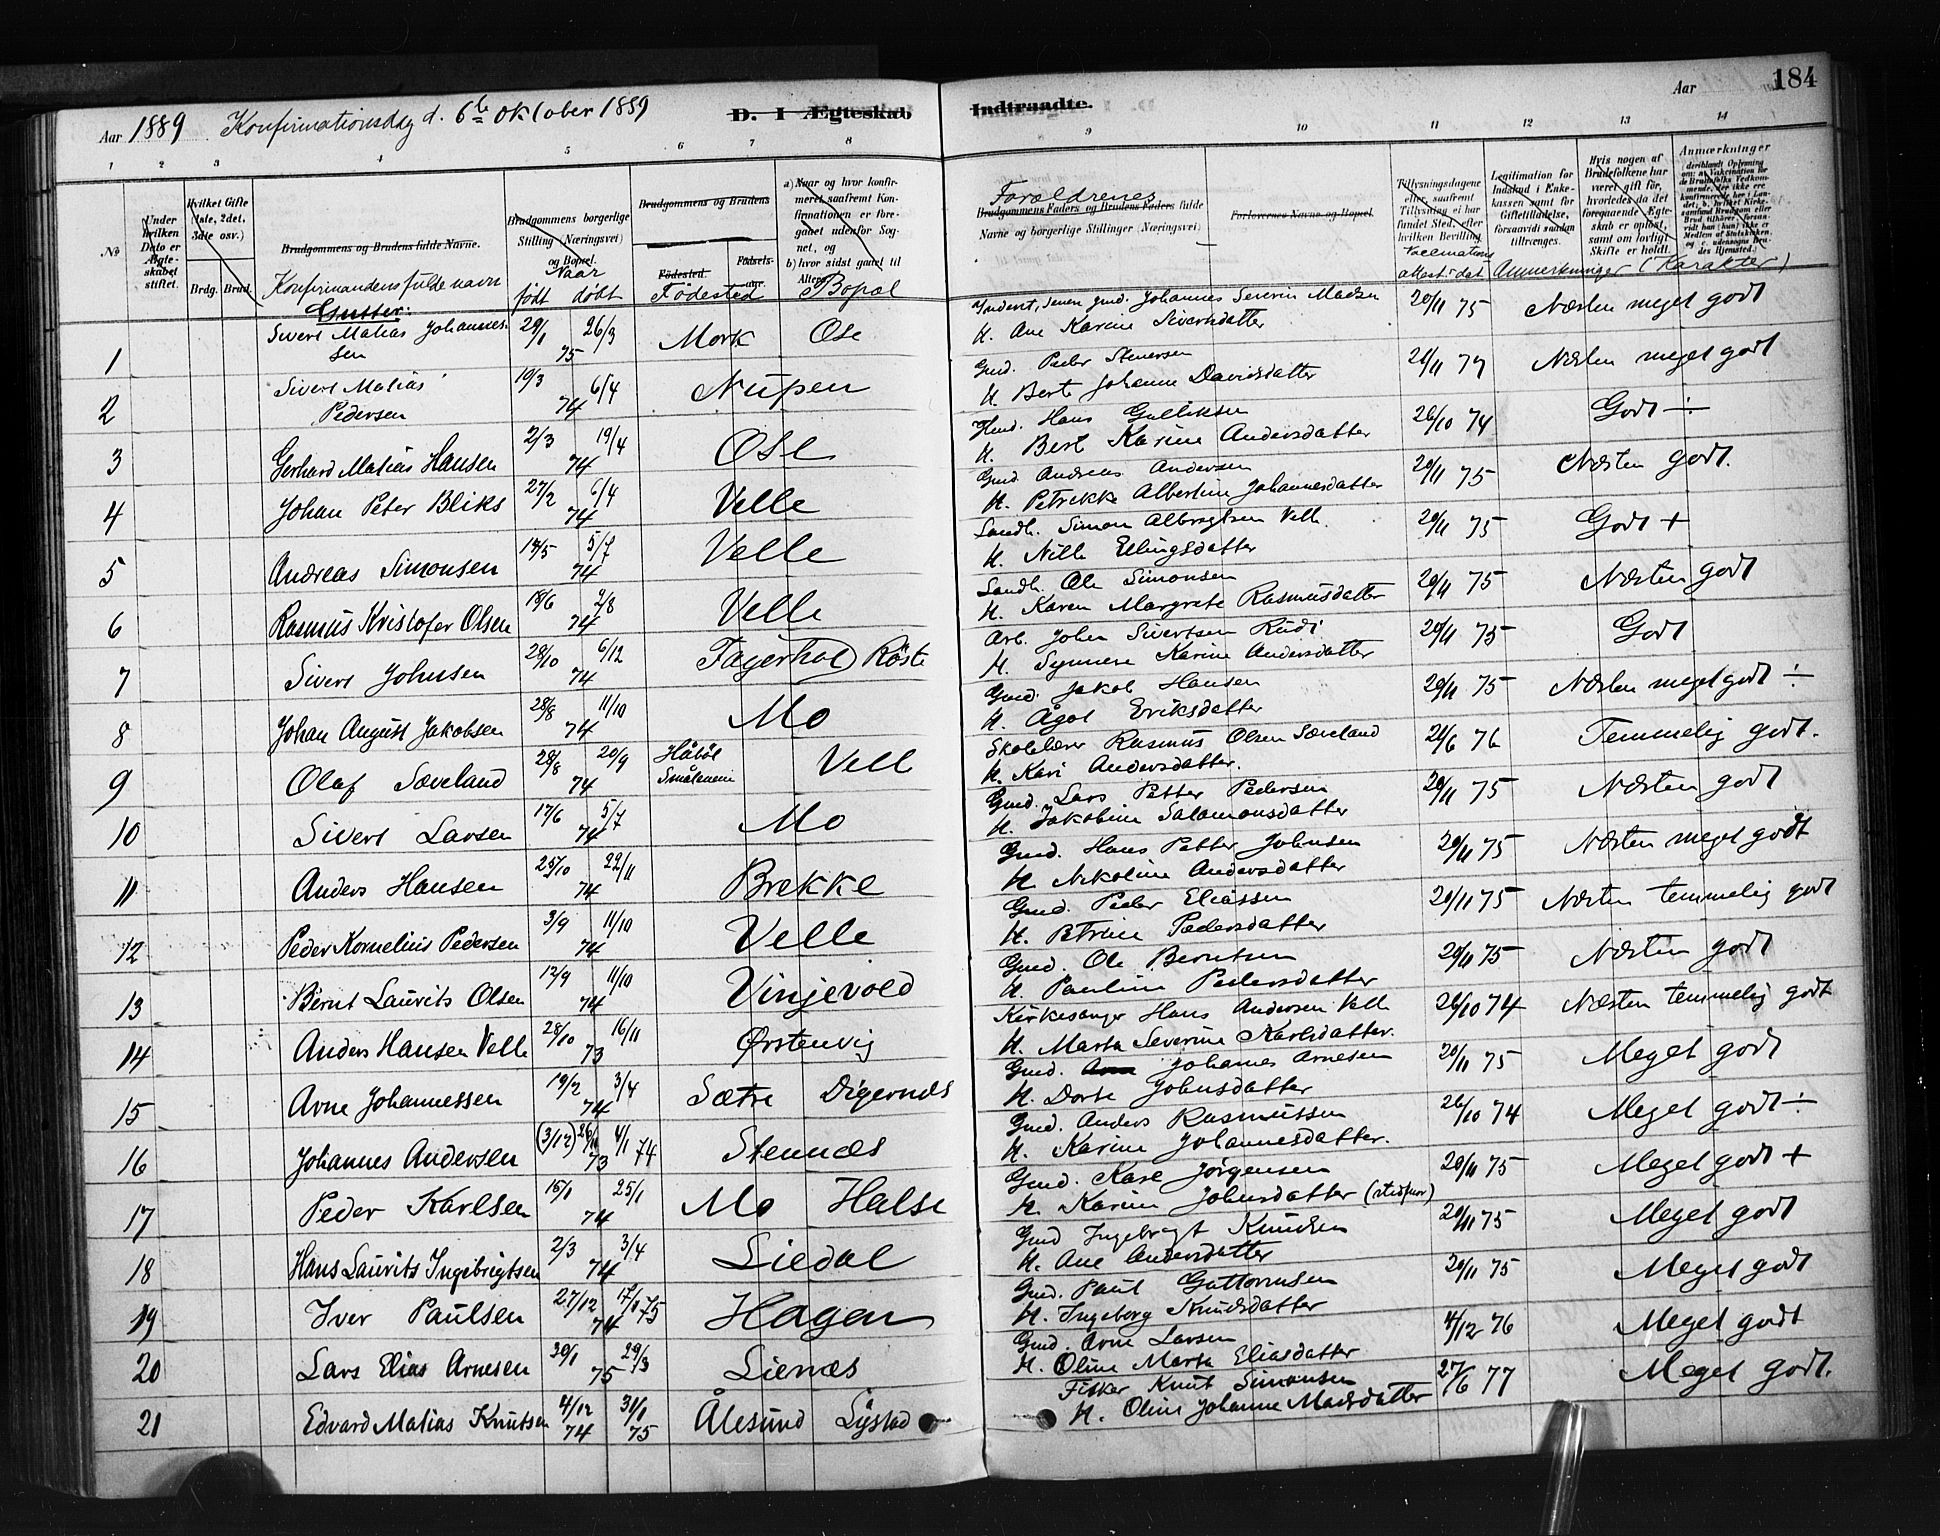 Aar 1889 Konfirmationsdag d. 6te Oktober 1889 D. I Ægteskab Indtraadte. Aar 184
1 2 3 4 5 6 7 8 9 10 11 12 13 14
No Under hvilken Dato er Ægteskabet stiftet. Hvilket Gifte (1ste, 2det, 3die osv.) Brdg. Brud. Brudgommens og Brudens fulde Navne. Brudgommens borgerlige Stilling (Næringsvei) og Bopæl. Brudgommens og Brudens Fødested. Fødselsaar. a) Naar og hvor konfirmeret, saafremt Konfirmationen er foregaaet udenfor Sognet, og b) hvor sidst gaaet til Alters.
Forældrenes Brudgommens Faders og Brudens Faders fulde Navne og borgerlige Stillinger (Næringsvei) Forlovernes Navne og Bopæl. Tillysningsdagene eller, saafremt Tillysning ei har fundet Sted, efter hvilken Bevilling. Legitimation for Indskud i Enkekassen samt for Giftetilladelse, forsaavidt saadan tiltrænges. Hvis nogen af Brudefolkene har været gift før, hvorledes da det foregaaende Ægteskab er opløst, samt om lovligt Skifte er holdt. Anmærkninger
Konfirmandens fulde navn Naar født døbt Fødested Bopæl Vaccinations attest dat Anmerkninger (Karakter)
Gutter:
1 Sivert Matias Johannessen 29/1 26/3 75 Mork Ose Inderst, senere gmd. Johannes Severin Madsen 20/11 75 Næsten meget godt
H. Ane Karine Sivertsdatter
2 Sivert Matias Pedersen 19/3 6/4 74 Nupen Gmd. Peder Stenersen 21/11 77 Næsten meget godt
H. Berte Johanne Davidsdatter
3 Gerhard Matias Hansen 2/3 19/4 74 Ose Hmd. Hans Gulliksen 26/10 74 Godt ÷
H. Berte Karine Andersdatter
4 Johan Peter Bliks 27/2 6/4 74 Velle Gmd Andreas Andersen 20/11 75 Næsten godt.
H. Petrikke Albertine Johannesdatter
5 Andreas Simonsen 14/5 5/7 74 Velle Sandh. Simon Albregtsen Velle 20/11 75 Godt +
H. Nille Ellingsdatter
6 Rasmus Kristofer Olsen 18/6 2/8 74 Velle Sandh. Ole Simonsen 20/11 75 Næsten godt
H. Karen Margrete Rasmusdatter
7 Sivert Johnsen 28/10 6/12 74 Fagerhol Røste Arb. John Sivertsen Rudi 20/11 75 Godt
H. Synnere Karine Andersdatter
8 Johan August Jakobsen 28/8 11/10 74 Mo Gmd. Jakob Hansen 20/11 75 Næsten meget godt ÷
H. Ågot Eriksdatter
9 Olaf Sæveland 28/8 20/9 74 Håbøl Smålenene Velle Skolelærer Rasmus Olsen Sæveland 21/6 76 Temmelig godt.
H. Kari Andersdatter.
10 Sivert Larsen 17/6 5/7 74 Mo Gmd. Lars Petter Pedersen 20/11 75 Næsten godt
H. Jakobine Salamonsdatter
11 Anders Hansen 25/10 22/11 74 Brekke Gmd. Hans Petter Johnsen 20/11 75 Næsten meget godt
H. Nikoline Andersdatter
12 Peder Kornelius Pedersen 3/9 11/10 74 Velle Gmd. Peder Eliassen 20/11 75 Næsten temmelig godt
H. Petrine Pedersdatter
13 Bernt Laurits Olsen 12/9 11/10 74 Vinjevold Gmd. Ole Berntsen 20/11 75 Næsten godt
H. Pauline Pedersdatter
14 Anders Hansen Velle 28/10 16/11 73 Ørstenvig Kirkesanger Hans Andersen Velle 26/10 74 Næsten temmelig godt
H. Marta Severine Karlsdatter.
15 Arne Johannessen 19/2 3/4 74 Sætre Digernes Gmd. Johannes Arnesen 20/11 75 Meget godt
H. Dorte Johnsdatter
16 Johannes Andersen (3/12) 26/10 73 4/1 74 Stennes Gmd. Anders Rasmussen 26/10 74 Meget godt ÷
H. Karine Johannesdatter.
17 Peder Karlsen 15/1 25/1 74 Mo Halse Gmd. Karl Jørgensen 20/11 75 Meget godt +
H. Karine Johnsdatter (stedmor)
18 Hans Laurits Ingebrigtsen 2/3 3/4 74 Liedal Gmd Ingebregt Knudsen 20/11 75 Meget godt
H. Ane Andersdatter
19 Iver Paulsen 27/12 74 17/1 75 Hagen Gmd. Paul Guttormsen 20/11 75 Meget godt
H. Ingeborg Knudsdatter
20 Lars Elias Arnesen 30/1 29/3 75 Lienæs Gmd. Arne Larsen 4/12 76 Meget godt
H. Oline Marta Eliasdatter
21 Edvard Matias Knutsen 4/12 74 31/1 75 Ålesund Systad Fisker Knut Simonsen 27/6 77 Meget godt.
H. Oline Johanne Madsdatter